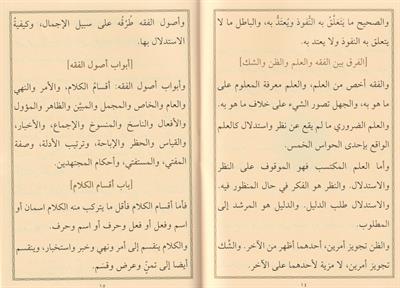 والصحيح ما يتعلق به النُّفوذ ويُعتدُّ به، والباطل ما لا
يتعلق به النفوذ ولا يعتد به.
[الفرق بين الفقه والعلم والظن والشك]
والفقه أخص من العلم، والعلم معرفة المعلوم على
ما هو به، والجهل تصور الشيء على خلاف ما هو به.
والعلم الضروري ما لم يقع عن نظر واستدلال كالعلم
الواقع بإحدى الحواس الخمس.
وأما العلم المكتسب فهو الموقوف على النظر
والاستدلال. والنظر هو الفكر في حال المنظور فيه.
والاستدلال طلب الدليل. والدليل هو المرشد إلى
المطلوب.
والظن تجويز أمرين، أحدهما أظهر من الآخر. والشَّك
تجويز أمرين، لا مزية لأحدهما على الآخر.
١٤
وأصول الفقه طُرُقُه على سبيل الإجمال، وكيفيةُ
الاستدلال بها.
[أبواب أصول الفقه]
وأبواب أصول الفقه: أقسامُ الكلام، والأمر والنهي
والعام والخاص والمجمل والمبيَّن والظاهر والمؤول
والأفعال والناسخ والمنسوخ والإجماع، والأخبار،
والقياس والحظر والإباحة، وترتيب الأدلة، وصفة
المفتي، والمستفتي، وأحكام المجتهدين.
[باب أقسام الكلام]
فأما أقسام الكلام فأقل ما يتركب منه الكلام اسمان أو
اسم وفعل أو فعل وحرف أو اسم وحرف.
والكلام ينقسم إلى أمر ونهي وخبر واستخبار، وينقسم
أيضا إلى تمنٍّ وعرض وقسَم.
١٥